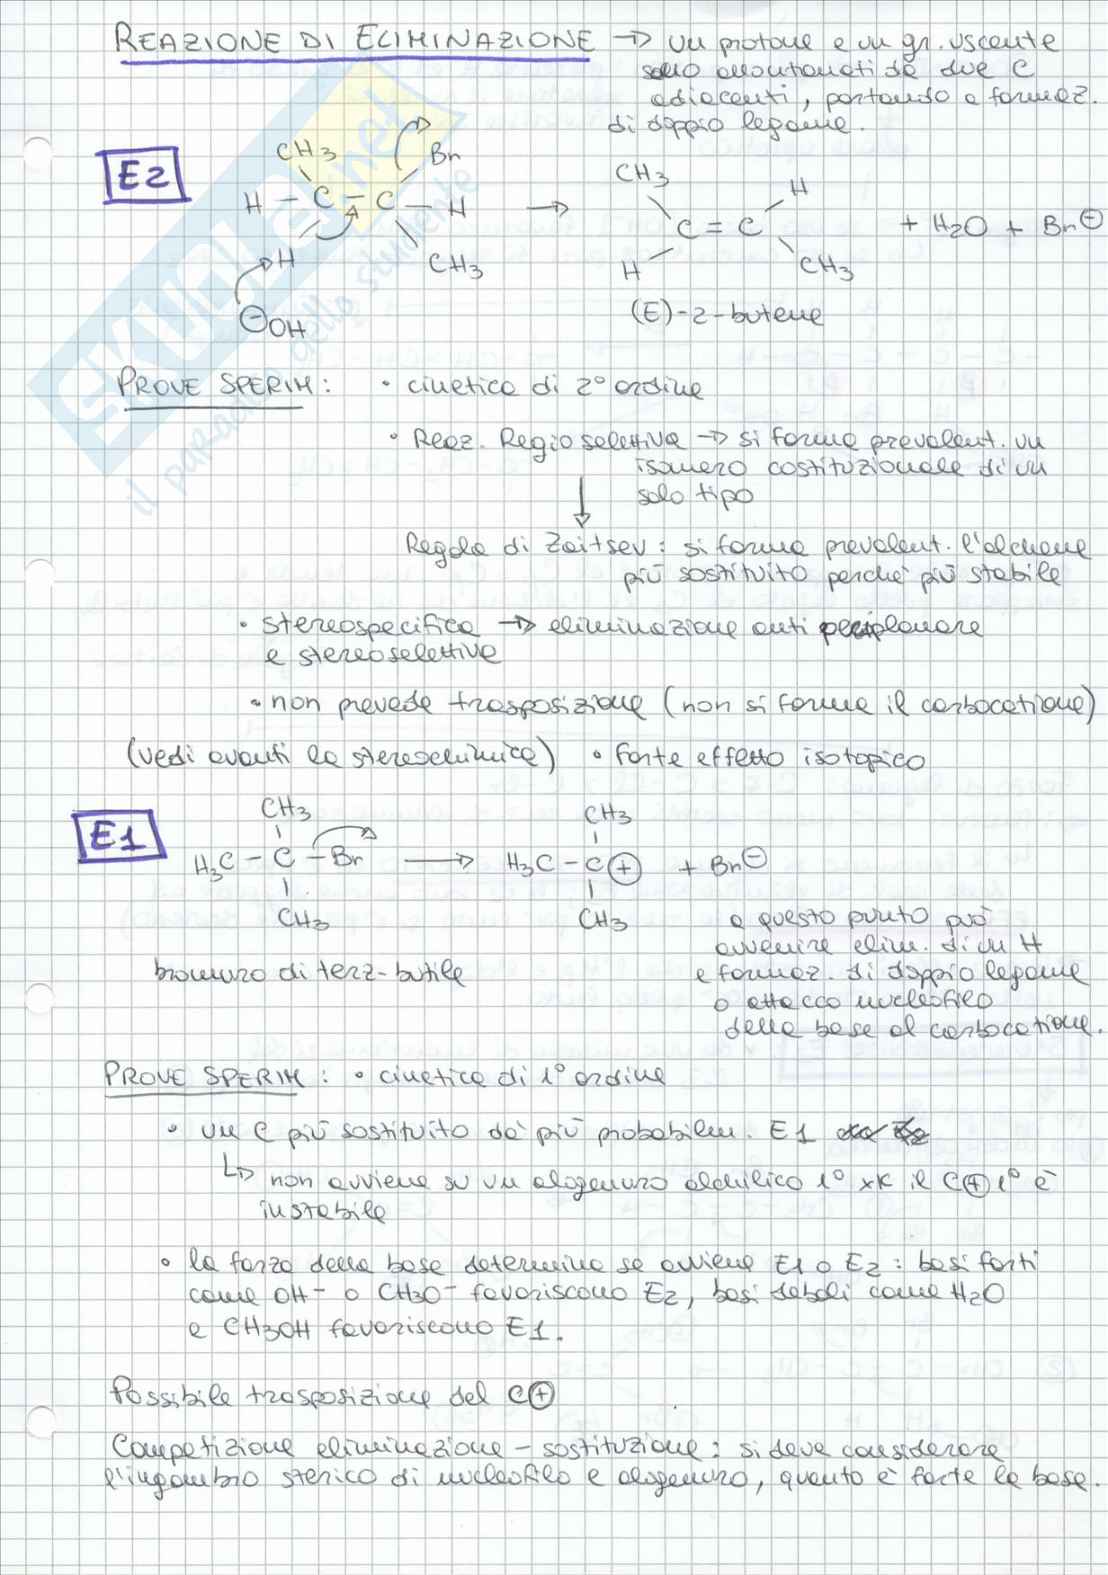 REAZIONE DI ELIMINAZIONE → un protone e un gr. uscente
sono allontanati da due C
adiacenti, portando a formaz.
di doppio legame.
E2
CH3 Br
H - C - C - H → CH3 C = C H + H2O + Br⊖
H CH3 H CH3
⊖OH
(E)-2-butene
PROVE SPERIM: • cinetica di 2° ordine
• Reaz. Regioselettiva → si forma prevalent. un
isomero costituzionale di un
solo tipo
↓
Regola di Zaitsev: si forma prevalent. l'alchene
più sostituito perché più stabile
• stereospecifica → eliminazione anti periplanare
e stereoselettiva
• non prevede trasposizione (non si forma il carbocatione)
(vedi avanti la stereochimica) • forte effetto isotopico
E1
CH3 CH3
H3C - C - Br → H3C - C⊕ + Br⊖
CH3 CH3
bromuro di terz-butile
a questo punto può
avvenire elim. di un H
e formaz. di doppio legame
o attacco nucleofilo
della base al carbocatione.
PROVE SPERIM: • cinetica di 1° ordine
• un C più sostituito dà più probabilm. E1
↳ non avviene su un alogenuro alchilico 1° xK il C⊕ 1° è
instabile
• la forza della base determina se avviene E1 o E2: basi forti
come OH- o CH3O- favoriscono E2, basi deboli come H2O
e CH3OH favoriscono E1.
Possibile trasposizione del C⊕
Competizione eliminazione - sostituzione: si deve considerare
l'ingombro sterico di nucleofilo e alogenuro, quanto è forte la base.
SKUOLA.net
il paradiso dello studente